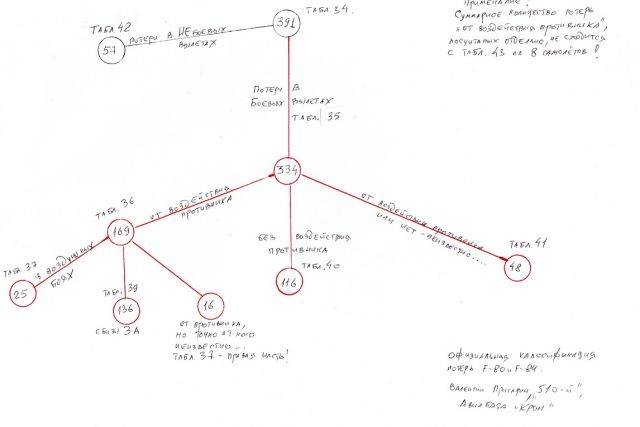 Примечание:
Суммарное количество потерь
"от воздействия противника",
посчитаных отдельно, не сходится
с ТАБЛ. 43 на 8 самолётов!
ТАБЛ. 34.
391
ТАБЛ. 42
57
ПОТЕРИ В НЕБОЕВЫХ
ВЫЛЕТАХ
ПОТЕРИ В
БОЕВЫХ ВЫЛЕТАХ
ТАБЛ. 35
334
ТАБЛ. 36
169
ОТ ВОЗДЕЙСТВИЯ
ПРОТИВНИКА
ОТ ВОЗДЕЙСТВИЯ ПРОТИВНИКА
ИЛИ НЕТ - НЕИЗВЕСТНО....
ТАБЛ. 41
48
БЕЗ ВОЗДЕЙСТВИЯ
ПРОТИВНИКА
ТАБЛ. 40
116
ТАБЛ. 37
25
В ВОЗДУШНЫХ
БОЯХ
ТАБЛ. 39
136
СБИЗ! ЗА
16
ОТ ПРОТИВНИКА,
НО ТОЧНО ОТ КОГО
НЕИЗВЕСТНО...
ТАБЛ. 37 - ПРАВАЯ ЧАСТЬ!
ОФИЦИАЛЬНАЯ КЛАССИФИКАЦИЯ
ПОТЕРЬ F-80 и F-84.
ВАЛЕНТИН "510-й",
АВИАБАЗА "КРОН"